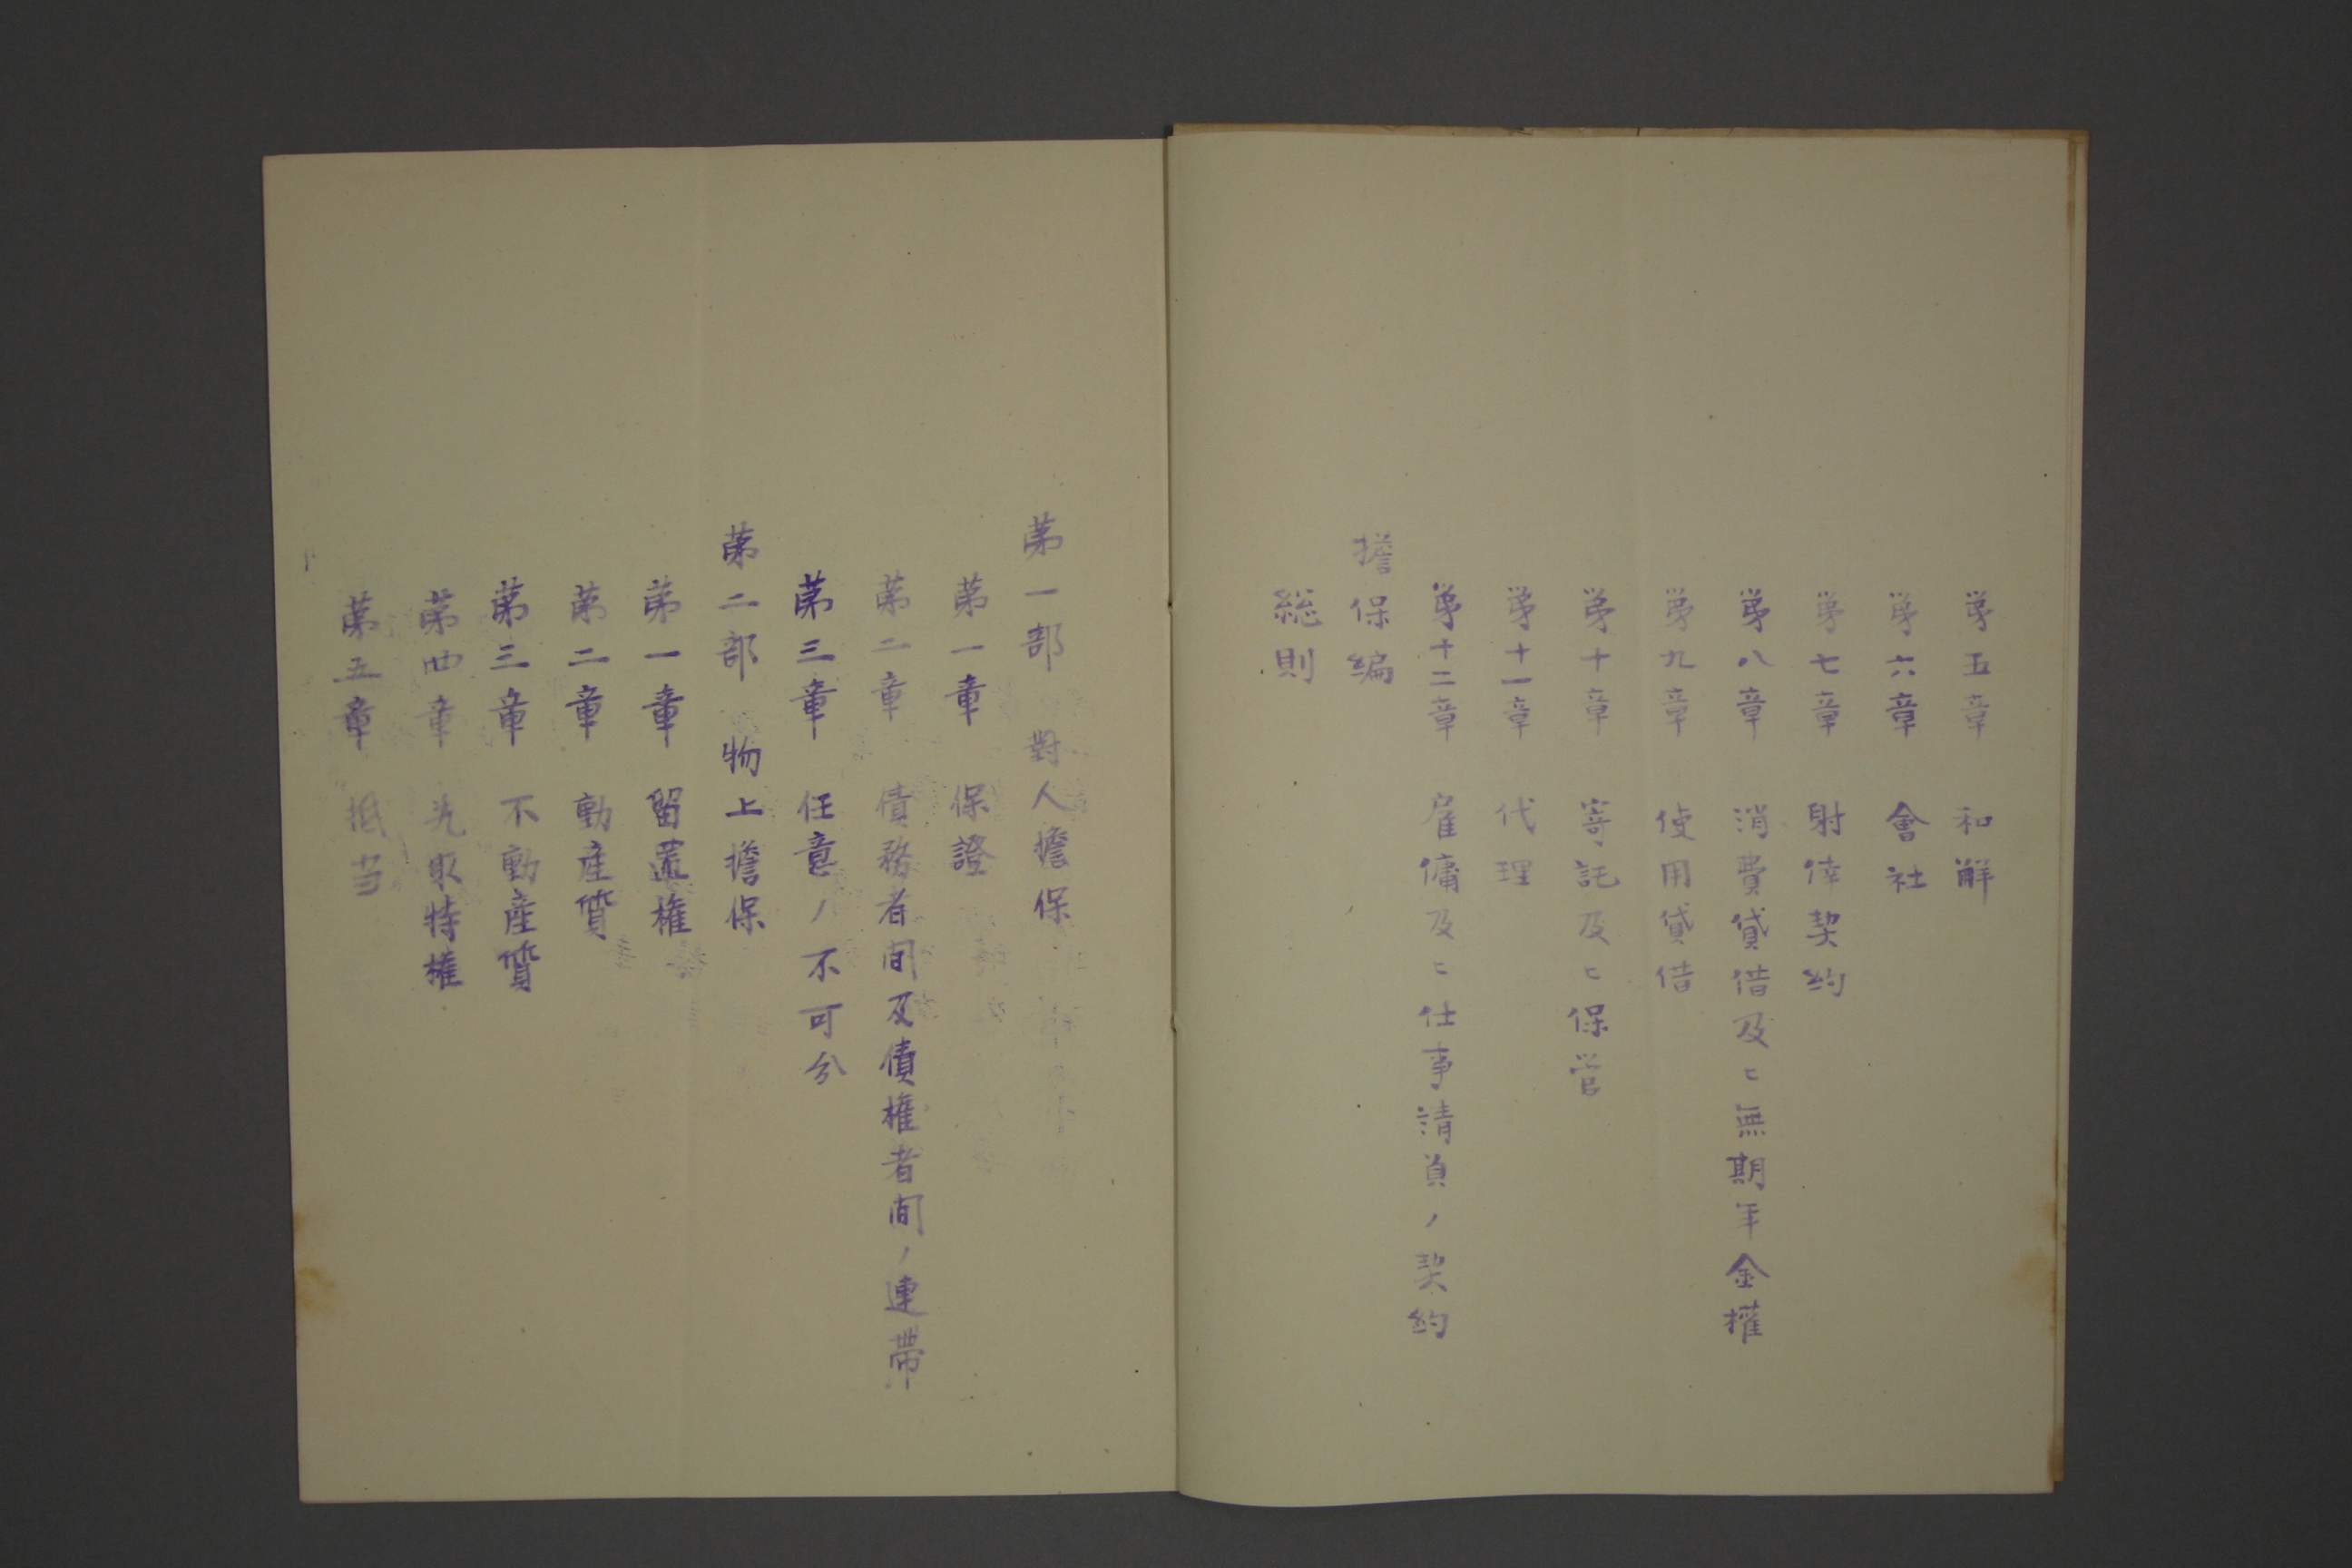 第五章　和解
第六章　會社
第七章　射倖契約
第八章　消費貸借及ヒ無期年金權
第九章　使用貸借
第十章　寄託及ヒ保管
第十一章　代理
第十二章　雇傭及ヒ仕事請負ノ契約
擔保編
総則
第一部　對人擔保
第一章　保證
第二章　債務者間及債権者間ノ連帶
第三章　任意ノ不可分
第二部　物上擔保
第一章　留置権
第二章　動産質
第三章　不動産質
第四章　先取特權
第五章　抵当